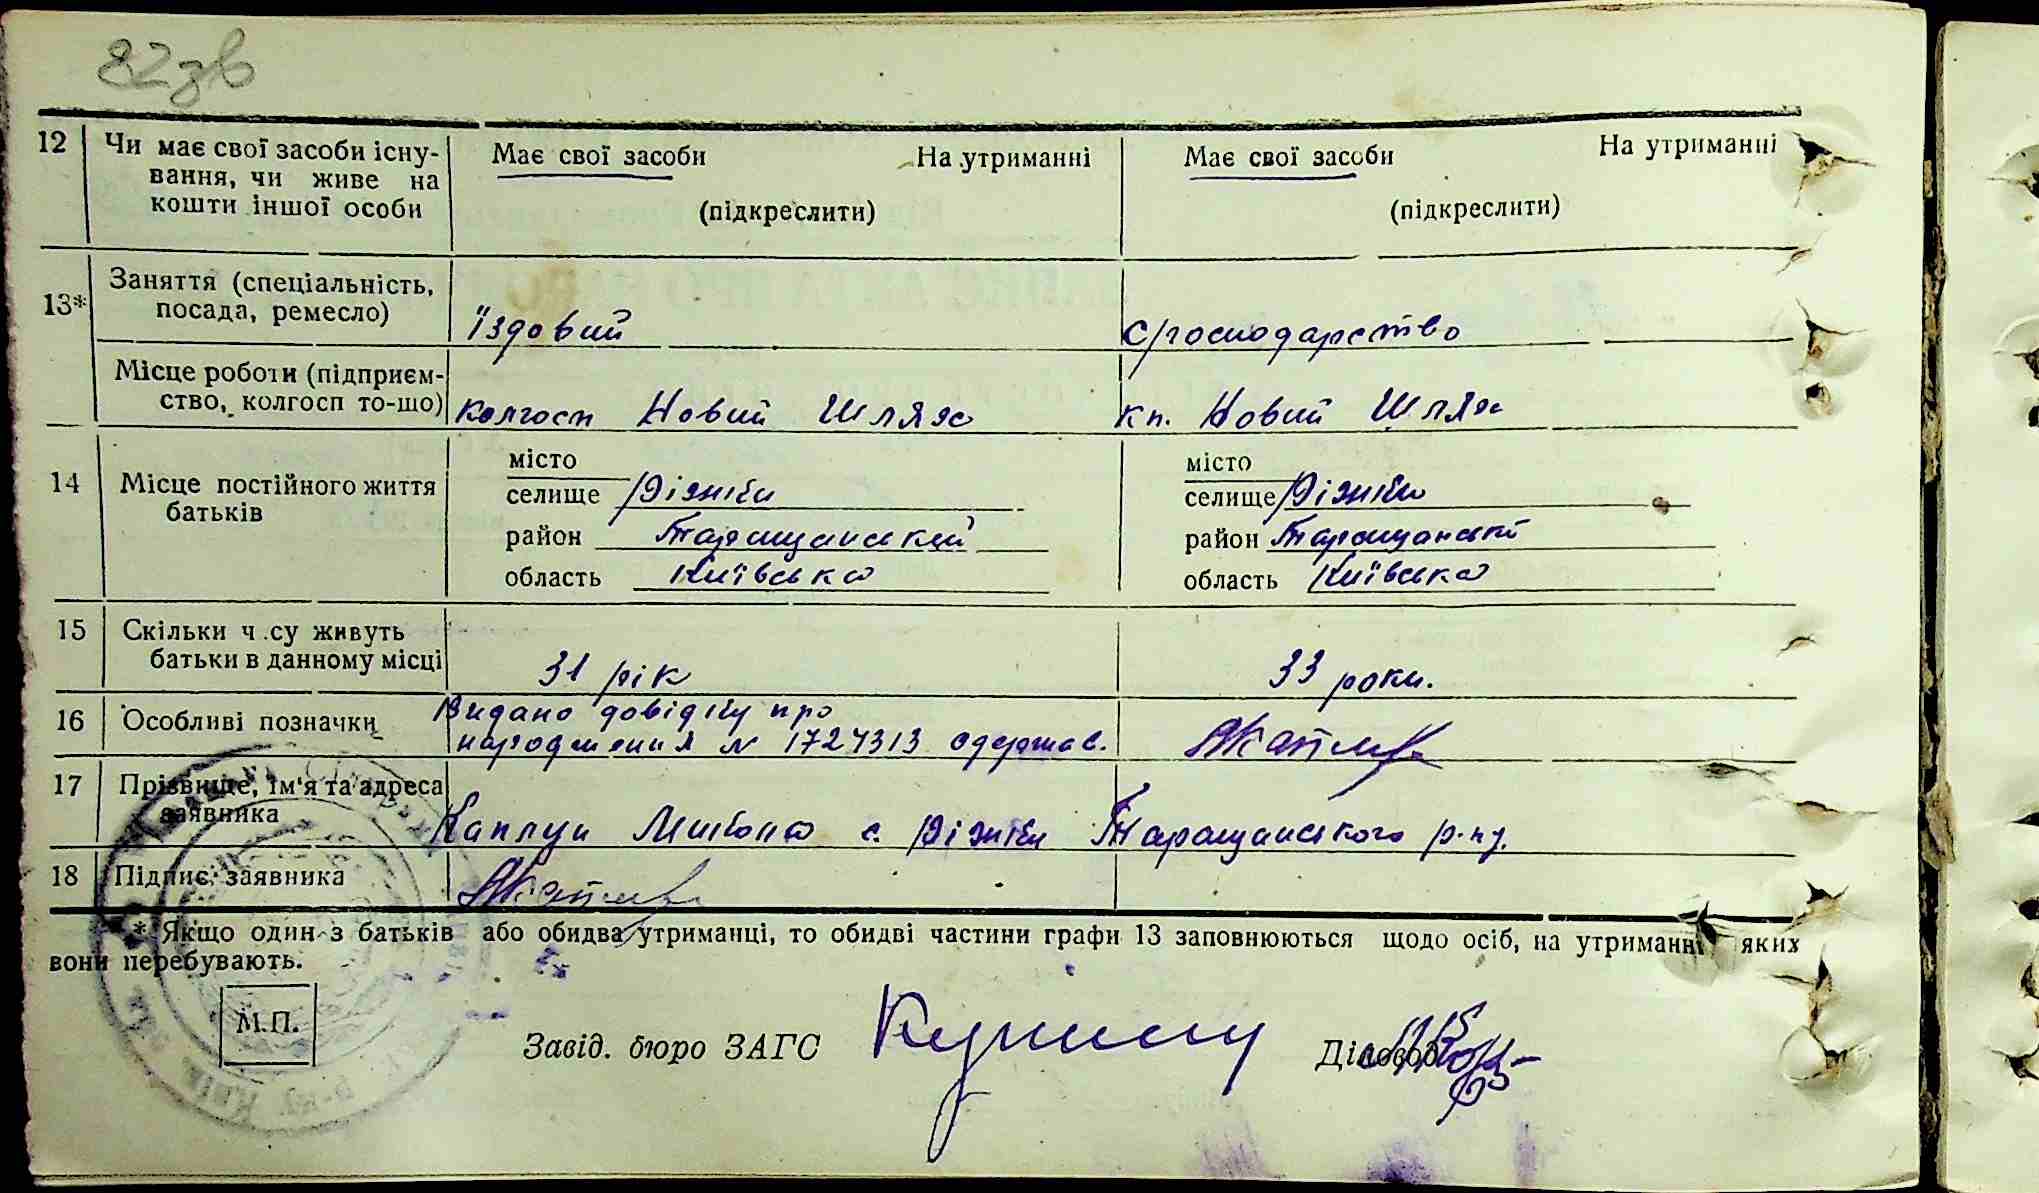 82зв
12 Чи має свої засоби існу- Має свої засоби На утриманні Має свої засоби На утриманні
вання, чи живе на
кошти іншої особи (підкреслити) (підкреслити)
13* Заняття (спеціальність,
посада, ремесло) їздовий с/господарство
Місце роботи (підприєм-
ство, колгосп то-що) Колгосп Новий Шлях кп. Новий Шлях
місто місто
14 Місце постійного життя селище Різьки селище Різьки
батьків
район Таращанський район Таращанський
область Київська область Київська
15 Скільки ч.су живуть
батьки в данному місці 31 рік 33 роки.
16 Особливі позначки Видано довідку про
народження № 1724313 одержав.
17 Прізвище, ім'я та адреса
заявника Каплун Микола с. Різьки Таращанського р-ну.
18 Підпис заявника
* Якщо один з батьків або обидва утриманці, то обидві частини графи 13 заповнюються щодо осіб, на утриманні яких
вони перебувають.
М.П.
Завід. бюро ЗАГС Діловод